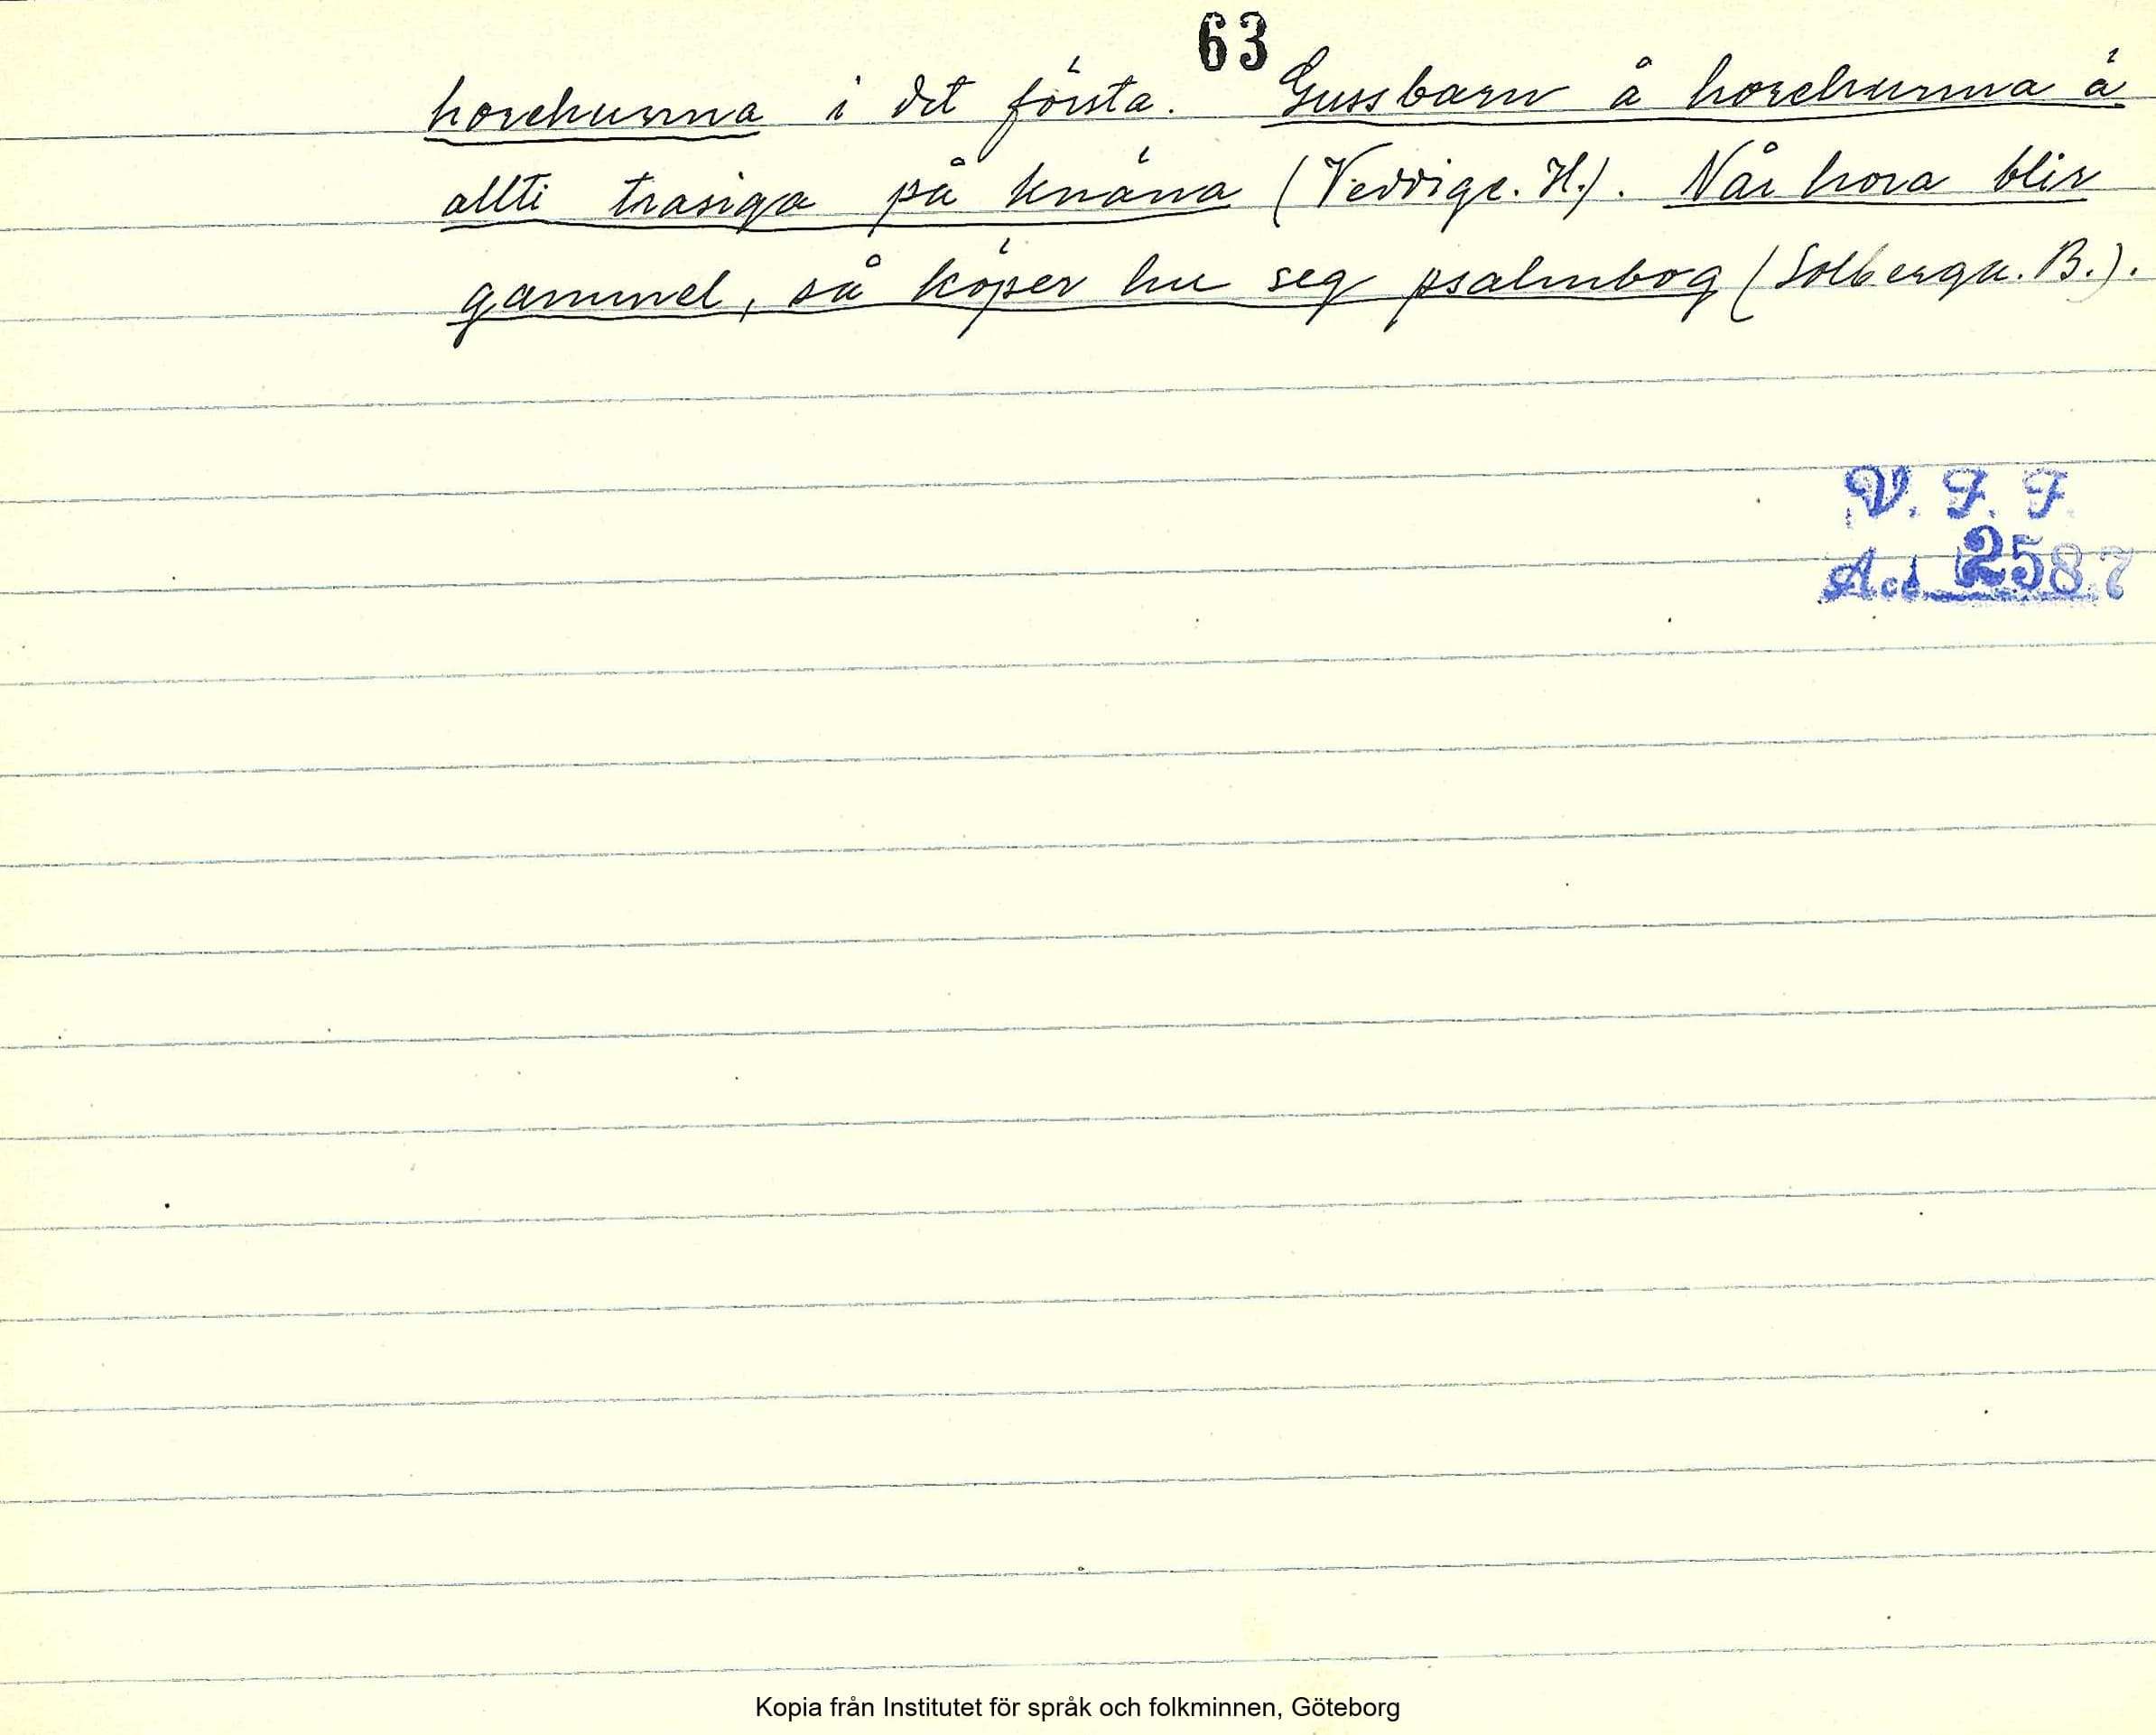 63
horehunna i det första. Gussbarn å horehunna ä
allti trasiga på knäna (Veddige. H.). När hora blir
gammel, så köper hu seg psalmbog (Solberga. B.).
V. F. F.
Acc. 2587
Kopia från Institutet för språk och folkminnen, Göteborg